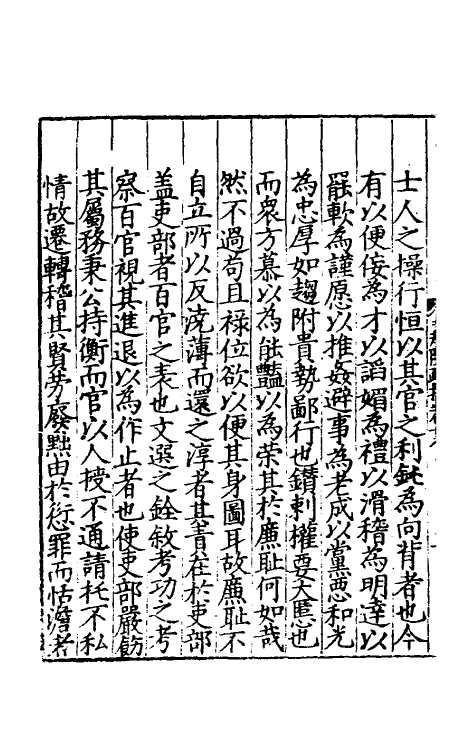 士人之操行恒以其官之利鈍為向背者也今
有以便佞為才以謟媚為禮以滑稽為明達以
罷軟為謹愿以推姦避事為老成以黨惡和光
為忠厚如趨附貴勢鄙行也鑽刺權要大慝也
而衆方慕以為能豔以為荣其於廉耻何如哉
然不過苟且禄位欲以便其身圖耳故廉耻不
自立所以反澆薄而還之淳者其責在於吏部
盖吏部者百官之表也文選之銓敘考功之考
察百官視其進退以為作止者也使吏部嚴飭
其屬務秉公持衡而官以人授不通請托不私
情故遷轉稽其賢勞廢黜由於愆罪而恬澹者